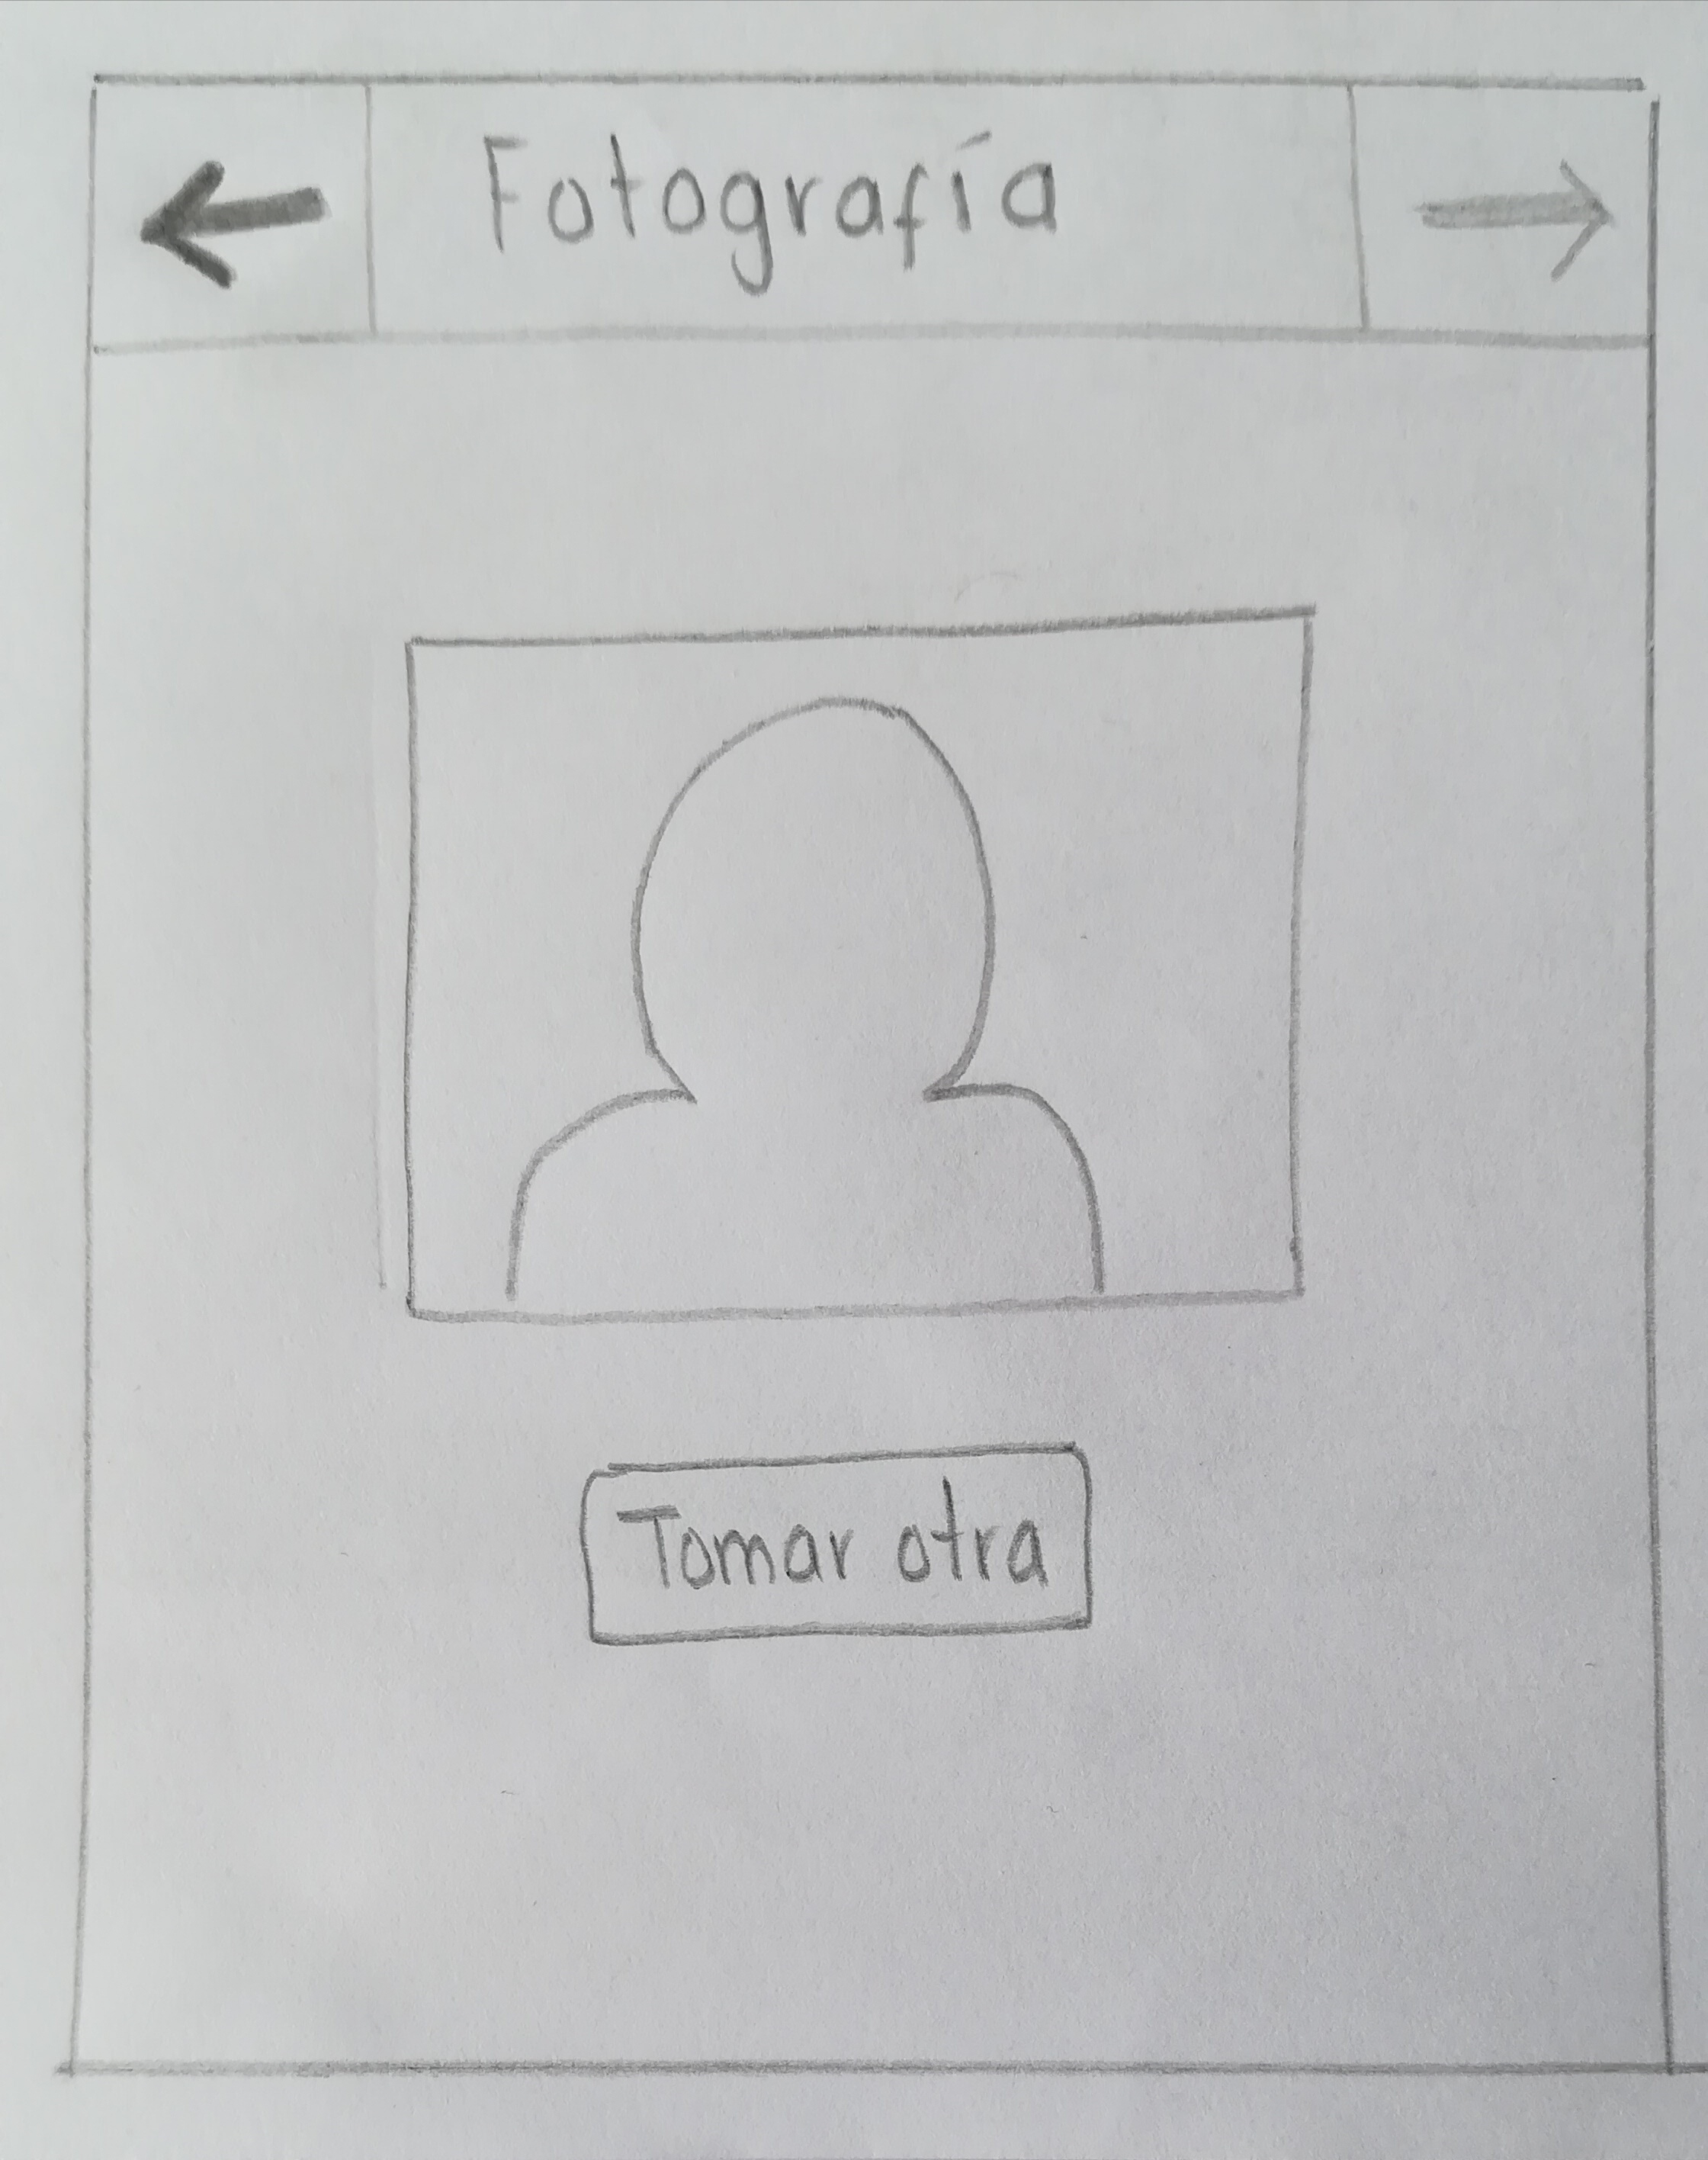 Fotografía
Tomar otra